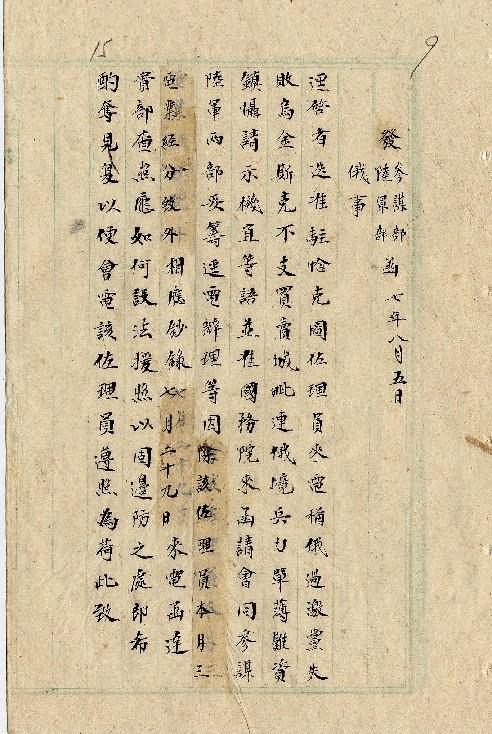 9
15
發 參謀部 陸軍部 函 七年八月五日
俄事
逕啓者迭准駐恰克圖佐理員來電稱俄過激黨失
敗烏金斯克不支買賣城毗連俄境兵力單薄難資
鎮懾請示機宜等語並准國務院來函請會同參謀
陸軍兩部妥籌逕電辦理等因除該佐理員本月三
電業經分致外相應鈔錄七月二十九日來電函達
貴部查照應如何設法援照以固邊防之處即希
酌奪見复以便會電該佐理員遵照為荷此致